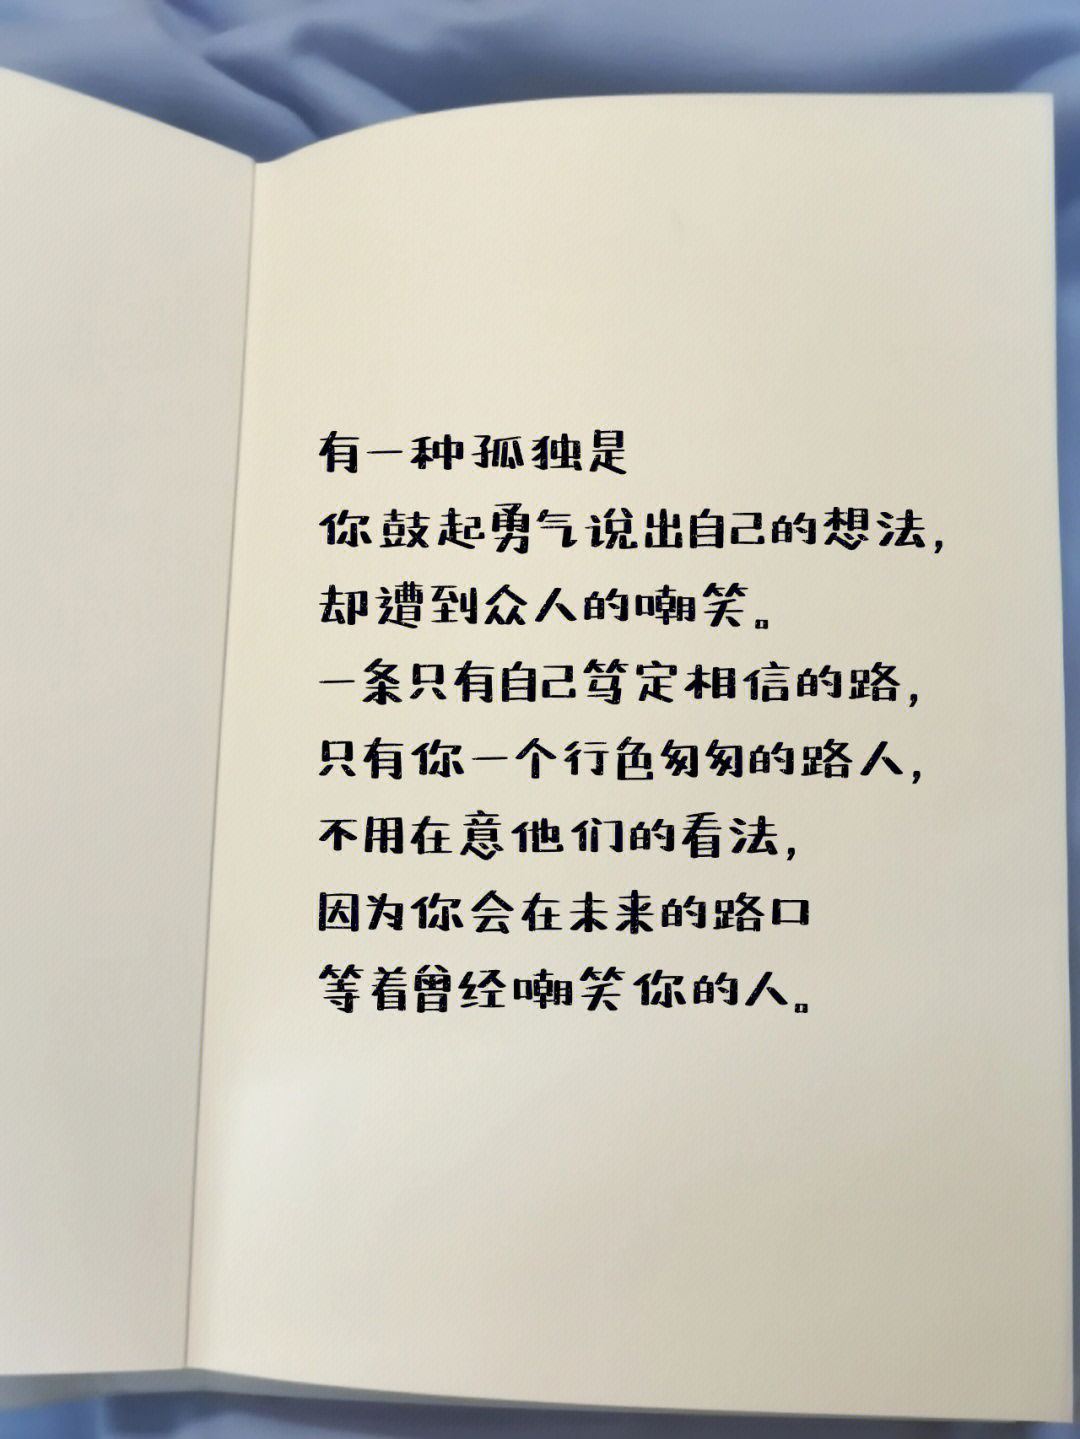 有一种孤独是
你鼓起勇气说出自己的想法，
却遭到众人的嘲笑。
一条只有自己笃定相信的路，
只有你一个行色匆匆的路人，
不用在意他们的看法，
因为你会在未来的路口
等着曾经嘲笑你的人。